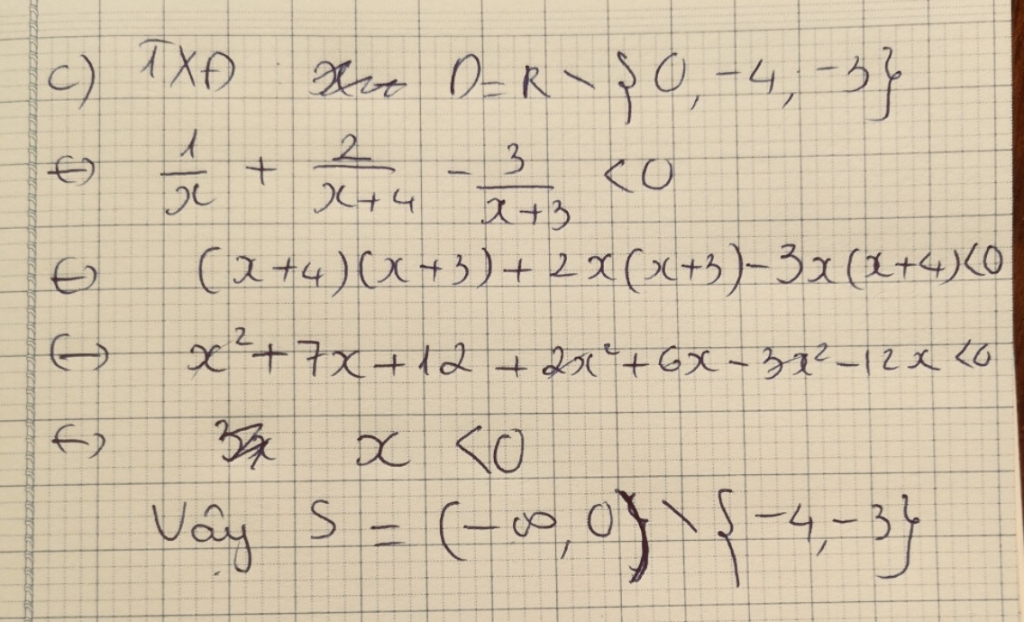 c) TXĐ D = R \ {0, -4, -3}
⇔ 1/x + 2/(x+4) - 3/(x+3) < 0
⇔ (x+4)(x+3) + 2x(x+3) - 3x(x+4) < 0
⇔ x² + 7x + 12 + 2x² + 6x - 3x² - 12x < 0
⇔ x < 0
Vậy S = (-∞, 0) \ {-4, -3}